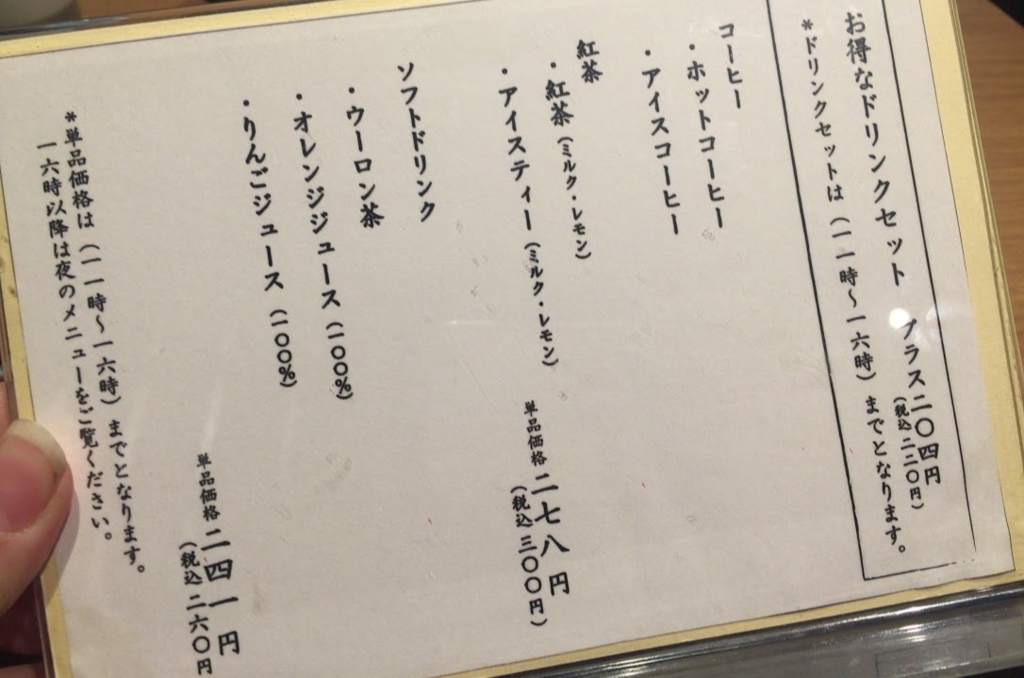 お得なドリンクセット　プラス二〇四円
（税込二二〇円）
＊ドリンクセットは（一一時〜一六時）までとなります。
コーヒー
・ホットコーヒー
・アイスコーヒー
紅茶
・紅茶（ミルク・レモン）
・アイスティー（ミルク・レモン）
単品価格 二七八円
（税込三〇〇円）
ソフトドリンク
・ウーロン茶
・オレンジジュース（一〇〇％）
・りんごジュース（一〇〇％）
単品価格 二四一円
（税込二六〇円
＊単品価格は（一一時〜一六時）までとなります。
一六時以降は夜のメニューをご覧ください。